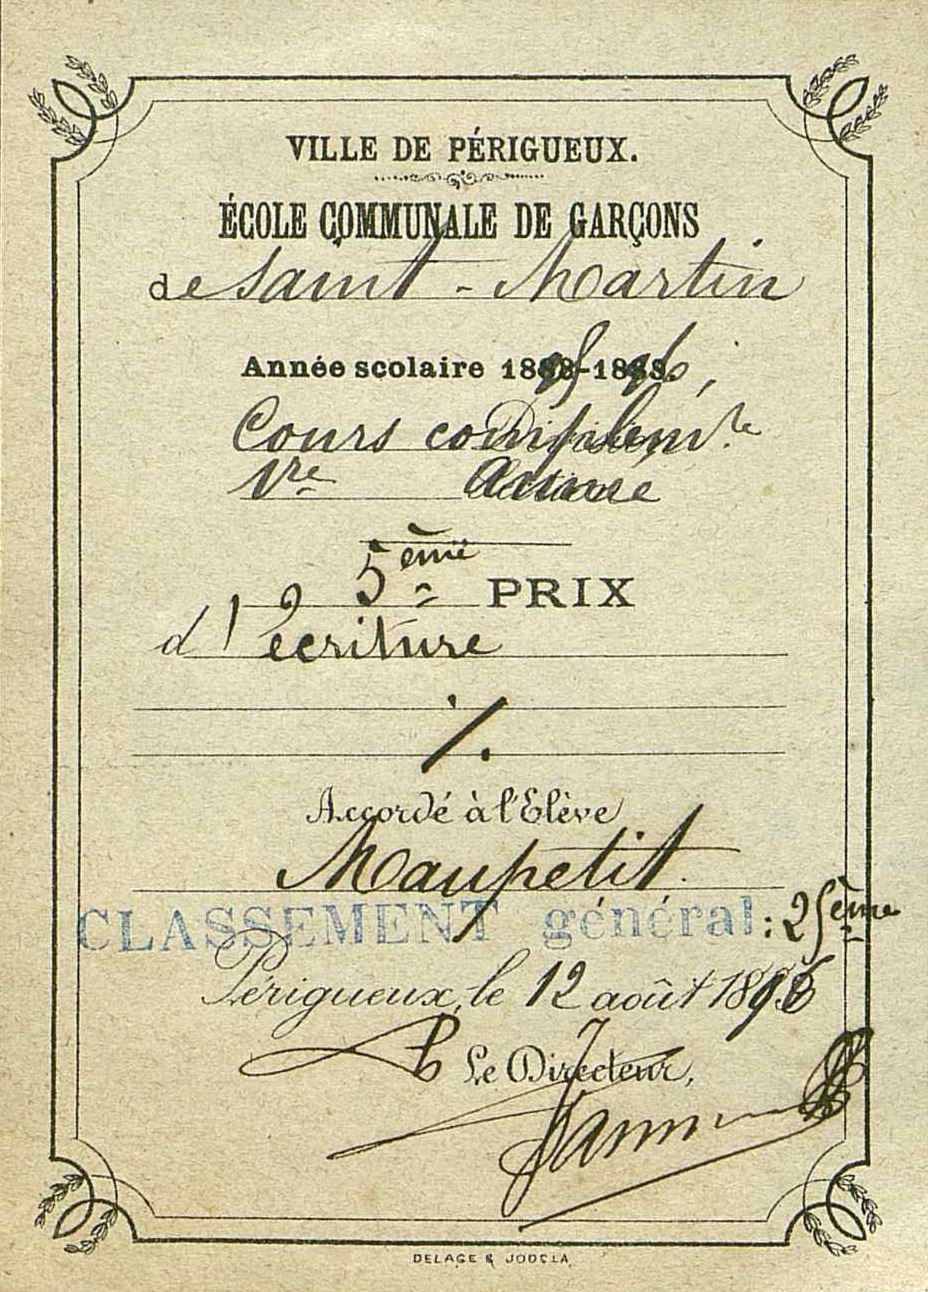 VILLE DE PÉRIGUEUX.
ÉCOLE COMMUNALE DE GARÇONS
de Saint-Martin
Année scolaire 1895-1896,
Cours complémre
1re Année
5ème PRIX
d'écriture
Accordé à l'Elève
Maupetit.
CLASSEMENT général: 25ème
Périgueux, le 12 août 1896
Le Directeur,
DELAGE & JOUCLA